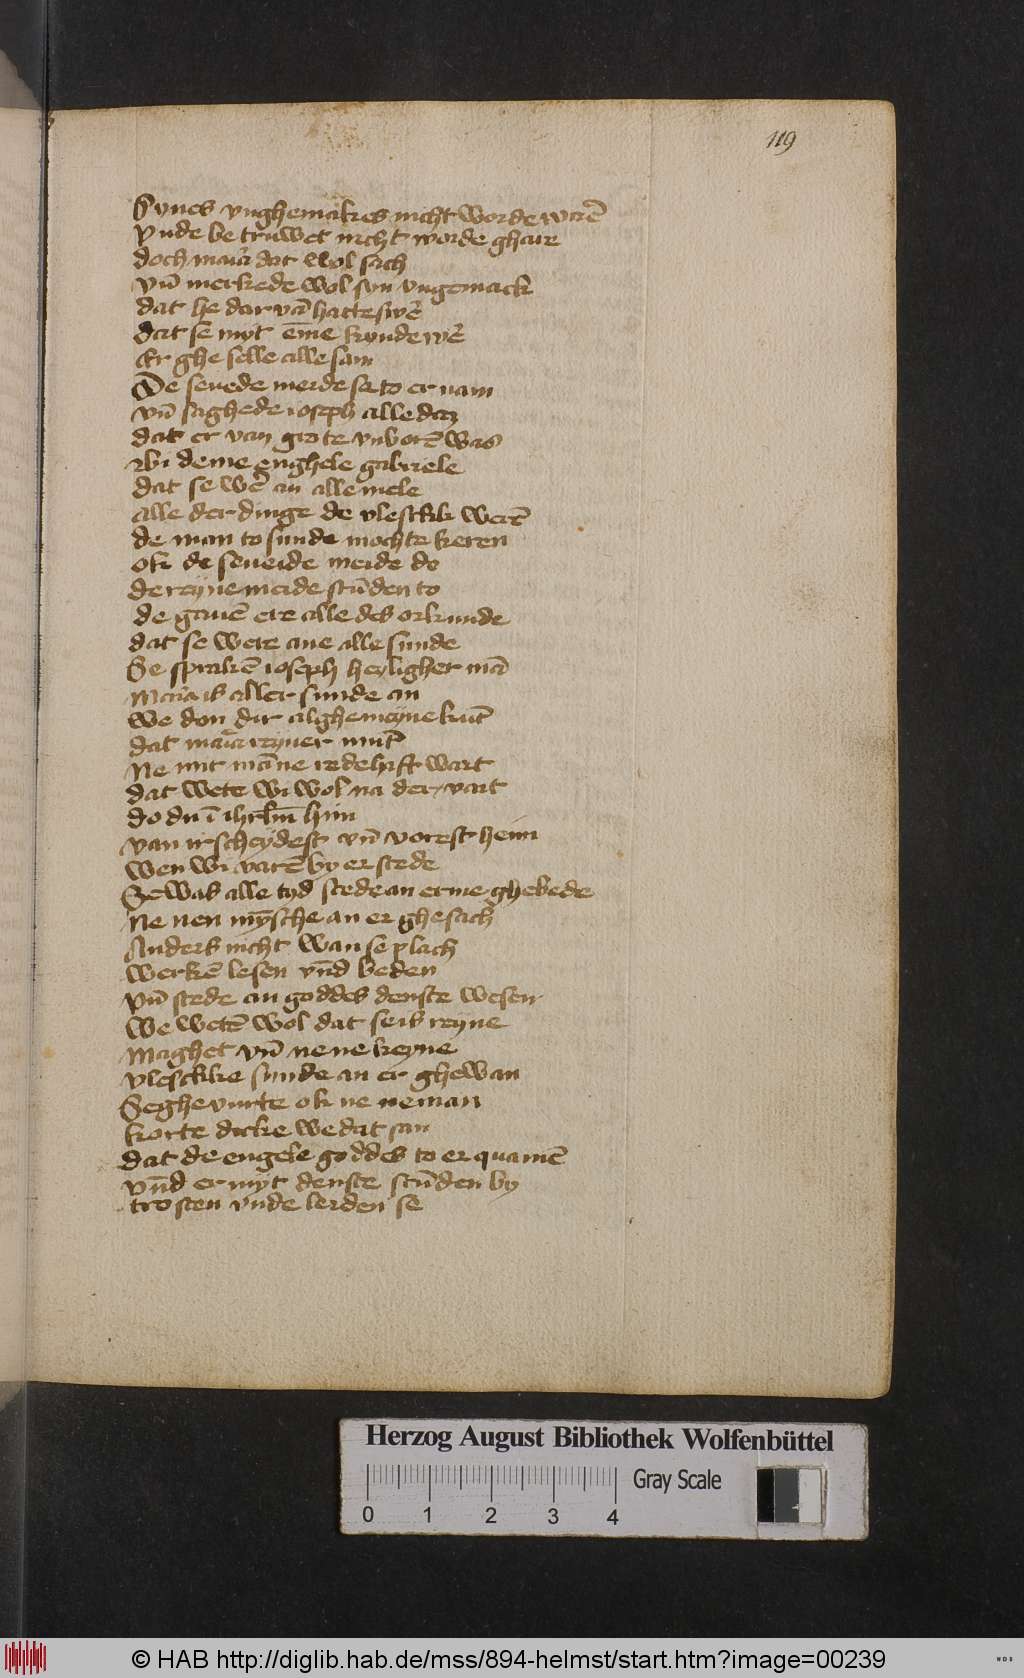 119
Synes vnghemakes nicht worde warē
Vnde be truwet nicht worde ghare
doch maria dat wol sach
vn̄ merkede wol syn vngemack
dat he dar vā hatte swe͛
dat se myt eīne kynde we͛
Er ghe selle alle sam
De seuede meide se to er nam
vn̄ saghede ioseph alle daz
dat er van grote vnvorē was
wi deme enghele gabriele
dat se we͛ an alle mele
alle der dinge de vlesckk werē
de man to sunde mochte keren
ok de seueide meide do
de reyne meide stūden to
de gauē ere alle des orkunde
dat se were ane alle sunde
Se sprakē ioseph heyligher mā
Maria is aller sunde an
we don dir alghemeyne kūt
dat maria reyner mūt
Ne mit māne redehaft wart
dat wete wi wol na der vart
do du ī ihrlm̄ hin
van ir scheydest vn̄ vorest heim
wen wi varē by er stede
Se was alle tyd stede an erme ghebede
Ne nen mȳsche an er ghesach
Anders nicht wan se plach
werkē lesen vn̄d beden
vn̄ stede an goddes denste wesen
we wetē wol dat se is reyne
Maghet vn̄ ne ne keyne
vlesckke sunde an er ghewan
Se ghevurte ok ne neman
korte dicke we dat san
dat de engele goddes to er quamē
vn̄d er myt denste stūden by
trosten vnde lerden se
Herzog August Bibliothek Wolfenbüttel
0 1 2 3 4 Gray Scale
© HAB http://diglib.hab.de/mss/894-helmst/start.htm?image=00239